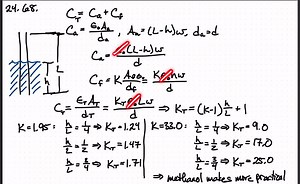 24.68.
C_T = C_a + C_f
C_a = ε₀A_a/d_a , A_a = (L-h)w, d_a = d
C_a = ε₀(L-h)w/d
L
h
C_f = K ε₀hw/d
C_T = ε_T A_T/d_T = K_T ε₀Lw/d ⇒ K_T = (K-1) h/L + 1
K=1.95: h/L = 1/4 ⇒ K_T = 1.24
h/L = 1/2 ⇒ K_T = 1.47
h/L = 3/4 ⇒ K_T = 1.71
K=33.0: h/L = 1/4 ⇒ K_T = 9.0
h/L = 1/2 ⇒ K_T = 17.0
h/L = 3/4 ⇒ K_T = 25.0
⇒ methanol makes more practical